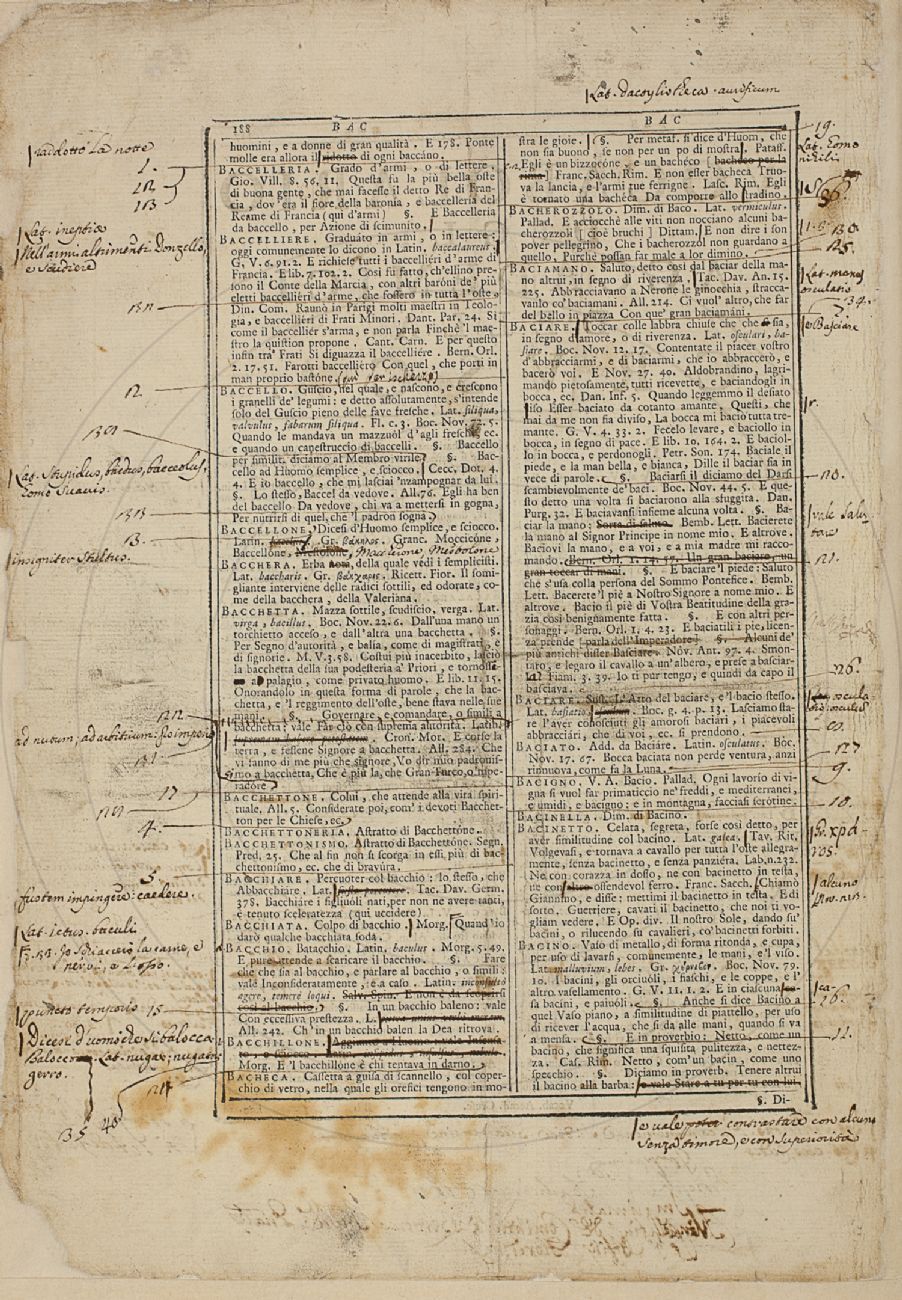 Lat. dacoyliotheca aurificum
188 BAC
BAC
huomini, e a donne di gran qualità. E 178. Ponte
molle era allora il ridotto di ogni baccáno.
BACCELLERIA. Grado d'armi, o di lettere.
Gio. Vill. 8. 56. 11. Questa fu la più bella oste
di buona gente, che mai facesse il detto Re di Fran-
cia, dov' era il fiore della baronia, e baccelleria del
Reame di Francia (qui d'armi) §. E Baccelleria
da baccello, per Azione di scimunito.
BACCELLIERE. Graduato in armi, o in lettere:
oggi comunemente lo dicono in Latin. baccalaureus.
G. V. 6. 91. 2. E richiese tutti i baccelliéri d'arme di
Francia. E lib. 7. 102. 2. Così fu fatto, ch'ellino pre-
sono il Conte della Marcia, con altri baróni de' più
eletti baccelliéri d'arme, che fossero in tutta l'oste.
Din. Com. Raunò in Parigi molti maestri in Teolo-
gia, e baccelliéri di Frati Minori. Dant. Par. 24. Sì
come il baccelliér s'arma, e non parla Finchè 'l mae-
stro la quistion propone. Cant. Carn. E per questo
infin tra' Frati Si diguazza il baccelliére. Bern. Orl.
2. 17. 51. Farotti baccelliéro Con quel, che porti in
man proprio bastóne. (qui per ischerzo)
BACCELLO. Guscio, nel quale, e nascono, e crescono
i granelli de' legumi: e detto assolutamente, s'intende
solo del Guscio pieno delle fave fresche. Lat. siliqua,
valvulus, fabarum siliqua. Fl. c. 3. Boc. Nov. 72. 5.
Quando le mandava un mazzuòl d'agli freschi, ec.
e quando un capestruccio di baccelli. §. Baccello
per similit. diciamo al Membro virile. §. Bac-
cello ad Huomo semplice, e sciocco. Cecc. Dot. 4.
4. E io baccello, che mi lasciai 'nzampognar da lui.
§. Lo stesso, Baccel da vedove. All. 76. Egli ha ben
del baccello Da vedove, chi va a mettersi in gogna,
Per nutrirsi di quel, che 'l padron sogna.
BACCELLONE. Dicesi d'Huomo semplice, e sciocco.
Latin. Gr. Granc. Moccicóne,
Baccellóne,
BACCHERA. Erba nota, della quale vedi i semplicisti.
Lat. baccharis. Gr. βάκχαρις. Ricett. Fior. Il somi-
gliante interviene delle radici sottili, ed odorate, co-
me della bacchera, della Valeriana.
BACCHETTA. Mazza sottile, scudiscio, verga. Lat.
virga, bacillus. Boc. Nov. 22. 6. Dall'una mano un
torchietto acceso, e dall'altra una bacchetta. §.
Per Segno d'autorità, e balìa, come di magistrati, e
di signorie. M. V. 3. 58. Costui più inacerbito, lasciò
la bacchetta della sua podesteria a' Priori, e tornossi
a palagio, come privato huomo. E lib. 11. 15.
Onorandolo in questa forma di parole, che la bac-
chetta, e 'l reggimento dell'oste, bene stava nelle sue
mani. §. Governare, e comandare, o simili a
bacchetta: vale Far ciò con suprema autorità. Latin.
Cron. Mor. E corse la
terra, e fessene Signore a bacchetta. All. 284. Che
vi fanno di me più che signore, Vo dir mio padronis-
simo a bacchetta, Che è più là, che Gran Turco, o'mpe-
radóre.
BACCHETTONE. Colui, che attende alla vita spiri-
tuale. All. 5. Considerate poi, com' i devoti Bacchet-
ton per le Chiese, ec.
BACCHETTONERIA. Astratto di Bacchettóne.
BACCHETTONISMO. Astratto di Bacchettóne. Segn.
Pred. 25. Che al fin non si scorga in essi più di bac-
chettonismo, ec. che di bravúra.
BACCHIARE. Percuoter col bacchio: lo stesso, che
Abbacchiáre. Lat. Tac. Dav. Germ.
378. Bacchiáre i figliuóli nati, per non ne avere tanti,
è tenuto sceleratezza (qui uccidere)
BACCHIATA. Colpo di bacchio. Morg. Quand'io
darò qualche bacchiata soda.
BACCHIO. Batacchio. Latin. baculus. Morg. 5. 49.
E pure attende a scaricare il bacchio. §. Fare
che che sia al bacchio, e parlare al bacchio, o simili:
vale Inconsideratamente, e a caso. Latin. inconsulto
agere, temerè loqui. Salv. Spin. E non è da scoprirsi
così al bacchio. §. In un bacchio baleno: vale
Con eccessiva prestezza. L.
All. 242. Ch' in un bacchio balen la Dea ritrova.
BACCHILLONE. Aggiunto a Huomo
Morg. E 'l bacchillone è chi tentava in darno.
BACHECA. Cassetta a guisa di scannello, col coper-
chio di vetro, nella quale gli orefici tengono in mo-
stra le gioie. §. Per metaf. si dice d'Huom, che
non sia buono, se non per un po di mostra. Pataff.
Egli è un bizzocóne, e un bachéco [bachéco per la
rima] Franc. Sacch. Rim. E non esser bacheca Truo-
va la lancia, e l'armi tue ferrigne. Lasc. Rim. Egli
è tornato una bachéca Da comporre allo stradino.
BACHEROZZOLO. Dim. di Baco. Lat. vermiculus.
Pallad. E acciocchè alle viti non nocciano alcuni ba-
cherozzoli [cioè bruchi] Dittam. E non dire i son
pover pellegrino, Che i bacherozzol non guardano a
quello, Purchè possan far male a lor dimino.
BACIAMANO. Saluto, detto così dal baciar della ma-
no altrui, in segno di riverenza. Tac. Dav. An. 15.
225. Abbracciavano a Nerone le ginocchia, stracca-
vanlo co' baciamani. All. 214. Ci vuol' altro, che far
del bello in piazza Con que' gran baciamáni.
BACIARE. Toccar colle labbra chiuse che che sia,
in segno d'amore, o di riverenza. Lat. osculari, ba-
siare. Boc. Nov. 12. 17. Contentate il piacer vostro
d'abbracciarmi, e di baciarmi, che io abbraccerò, e
bacerò voi. E Nov. 27. 40. Aldobrandino, lagri-
mando pietosamente, tutti ricevette, e baciandogli in
bocca, ec. Dan. Inf. 5. Quando leggemmo il desiato
riso Esser baciato da cotanto amante. Questi, che
mai da me non fia diviso, La bocca mi baciò tutta tre-
mante. G. V. 4. 33. 2. Fecelo levare, e baciollo in
bocca, in segno di pace. E lib. 10. 164. 2. E baciol-
lo in bocca, e perdonogli. Petr. Son. 174. Baciale il
piede, e la man bella, e bianca, Dille il baciar sia in
vece di parole. §. Baciarsi il diciamo del Darsi
scambievolmente de' baci. Boc. Nov. 44. 5. E que-
sto detto una volta si baciarono alla sfuggita. Dan.
Purg. 32. E baciavansi insieme alcuna volta. §. Ba-
ciar la mano: Sorta di saluto. Bemb. Lett. Bacierete
la mano al Signor Principe in nome mio. E altrove.
Baciovi la mano, e a voi, e a mia madre mi racco-
mando. Bern. Orl. 1. 14. 57. Un gran baciare, un
gran toccar di mani. §. E baciare 'l piede: Saluto
che s'usa colla persona del Sommo Pontefice. Bemb.
Lett. Bacerete 'l piè a Nostro Signore a nome mio. E
altrove. Bacio il piè di Vostra Beatitudine della gra-
zia così benignamente fatta. §. E con altri per-
sonaggi. Bern. Orl. 1. 4. 23. E baciatili i pie, licen-
zia prende [parla dell'Imperadore] §. Alcuni de'
più antichi disser Basciare. Nóv. Ant. 97. 4. Smon-
taro, e legaro il cavallo a un'albero, e prese a basciar-
la. Fiam. 3. 39. Io ti pur tengo, e quindi da capo il
basciava.
BACIARE. Sust. L'Atto del baciare, e 'l bacio stesso.
Lat. basiatio. Boc. g. 4. p. 13. Lasciamo sta-
re l'aver conosciuti gli amorosi baciari, i piacevoli
abbracciári, che di voi, ec. si prendono.
BACIATO. Add. da Baciáre. Latin. osculatus. Boc.
Nov. 17. 67. Bocca baciata non perde ventura, anzi
rinnuova, come fa la Luna.
BACIGNO. V. A. Bacío. Pallad. Ogni lavorio di vi-
gna si vuol far primaticcio ne' freddi, e mediterranei,
e umidi, e bacigno: e in montagna, facciasi serótine.
BACINELLA. Dim. di Bacino.
BACINETTO. Celata, segreta, forse così detto, per
aver similitudine col bacino. Lat. galea. Tav. Rit.
Volgevasi, e tornava a cavallo per tutta l'oste allegra-
mente, senza bacinetto, e senza panziéra. Lab. n. 232.
Ne con corazza in dosso, ne con bacinetto in testa,
ne con alcuno offendevol ferro. Franc. Sacch. Chiamò
Giannino, e disse: mettimi il bacinetto in testa. E di
sotto. Guerriere, cavati il bacinetto, che noi ti vo-
gliam vedere. E Op. div. Il nostro Sole, dando su'
bacini, o rilucendo su cavalieri, co' bacinetti forbiti.
BACINO. Vaso di metallo, di forma ritonda, e cupa,
per uso di lavarsi, comunemente, le mani, e 'l viso.
Lat. malluvium, lebes. Gr. Boc. Nov. 79.
10. I bacini, gli orciuóli, i fiaschi, e le coppe, e l'
altro vasellamento. G. V. 11. 1. 2. E in ciascuna ca-
sa bacini, e paiuóli. §. Anche si dice Bacino a
quel Vaso piano, a similitudine di piattello, per uso
di ricever l'acqua, che si dà alle mani, quando si va
a mensa. §. E in proverbio: Netto, come un
bacino, che significa una squisita pulitezza, e nettez-
za. Cas. Rim. Netto, com'un bacin, come uno
specchio. §. Diciamo in proverb. Tenere altrui
il bacino alla barba: e vale Stare a tu per tu con lui.
§. Di-
raddotto la notte
Lat. ineptia
Nell'armi altrimenti Donzello,
e Scudiere
12
Lat. Stupidus,
13
insigniter Stultus.
ad nutum; ad arbitrium:
17
4.
5.
fustem impingere: caedere.
Lat. ictus baculi
puncto temporis 15
Dicesi d'uomo che si balocca
Lat. nugax,
gerro.
35 40
19.
25.
Lat. manus
osculatio
34.
e Basciare
r.
20.
vale Salu-
tare
21.
26.
9.
10.
alcuno
ca-
16.
11.
e vale poter contrastare con alcuno
senza timore, e con superiorità